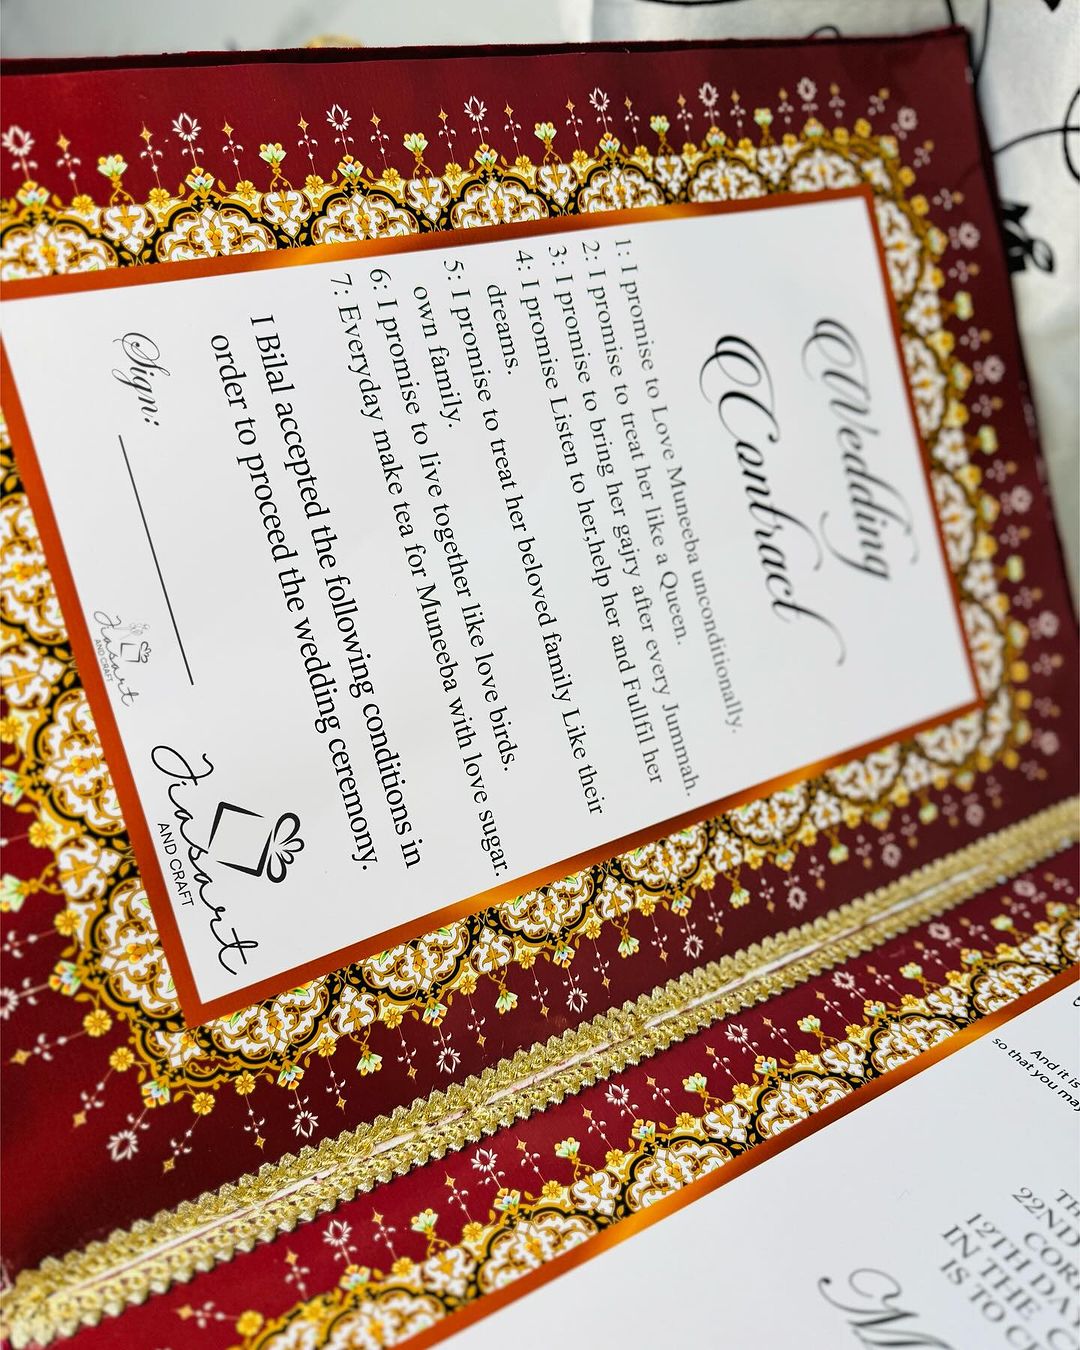 Wedding
Contract
1: I promise to Love Muneeba unconditionally.
2: I promise to treat her like a Queen.
3: I promise to bring her gajry after every Jummah.
4: I promise Listen to her,help her and Fullfil her
dreams.
5: I promise to treat her beloved family Like their
own family.
6: I promise to live together like love birds.
7: Everyday make tea for Muneeba with love sugar.
I Bilal accepted the following conditions in
order to proceed the wedding ceremony.
Sign:
Jiasart
AND CRAFT
Jiasart
AND CRAFT
And it is
so that you may
22ND
12TH DAY
IN THE
IS TO